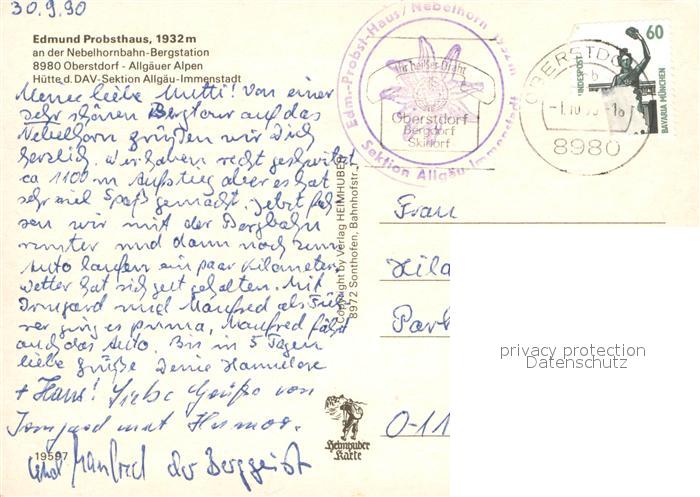 30.9.90
Edmund Probsthaus, 1932m
an der Nebelhornbahn-Bergstation
8980 Oberstdorf - Allgäuer Alpen
Hütte d. DAV-Sektion Allgäu-Immenstadt
Meine liebe Mutti! Von einer
sehr schönen Bergtour auf das
Nebelhorn grüßen wir Dich
herzlich. Wir haben recht geschwitzt
ca 1100 m Aufstieg aber es hat
sehr viel Spaß gemacht. Jetzt fah
ren wir mit der Bergbahn
runter und dann noch zum
Auto laufen ein paar Kilometer.
Wetter hat sich gut gehalten. Mit
Irmgard und Manfred als Füh
rer ging es prima, Manfred fährt
auch das Auto. Bis in 5 Tagen
liebe Grüße Deine Hannelore
+ Hans! Liebe Grüße von
Irmgard und
und Manfred der Berggeist
19597
Copyright by Verlag HEIMHUBER
8972 Sonthofen, Bahnhofstr.
Heimhuber
Karte
Edm.-Probst-Haus / Nebelhorn 1932m
Sektion Allgäu-Immenstadt
Ihr heißer Draht
Oberstdorf
Bergdorf
Skidorf
OBERSTDORF
8980
60
BUNDESPOST
BAVARIA MÜNCHEN
Frau
Hila
Park
O-11
privacy protection
Datenschutz